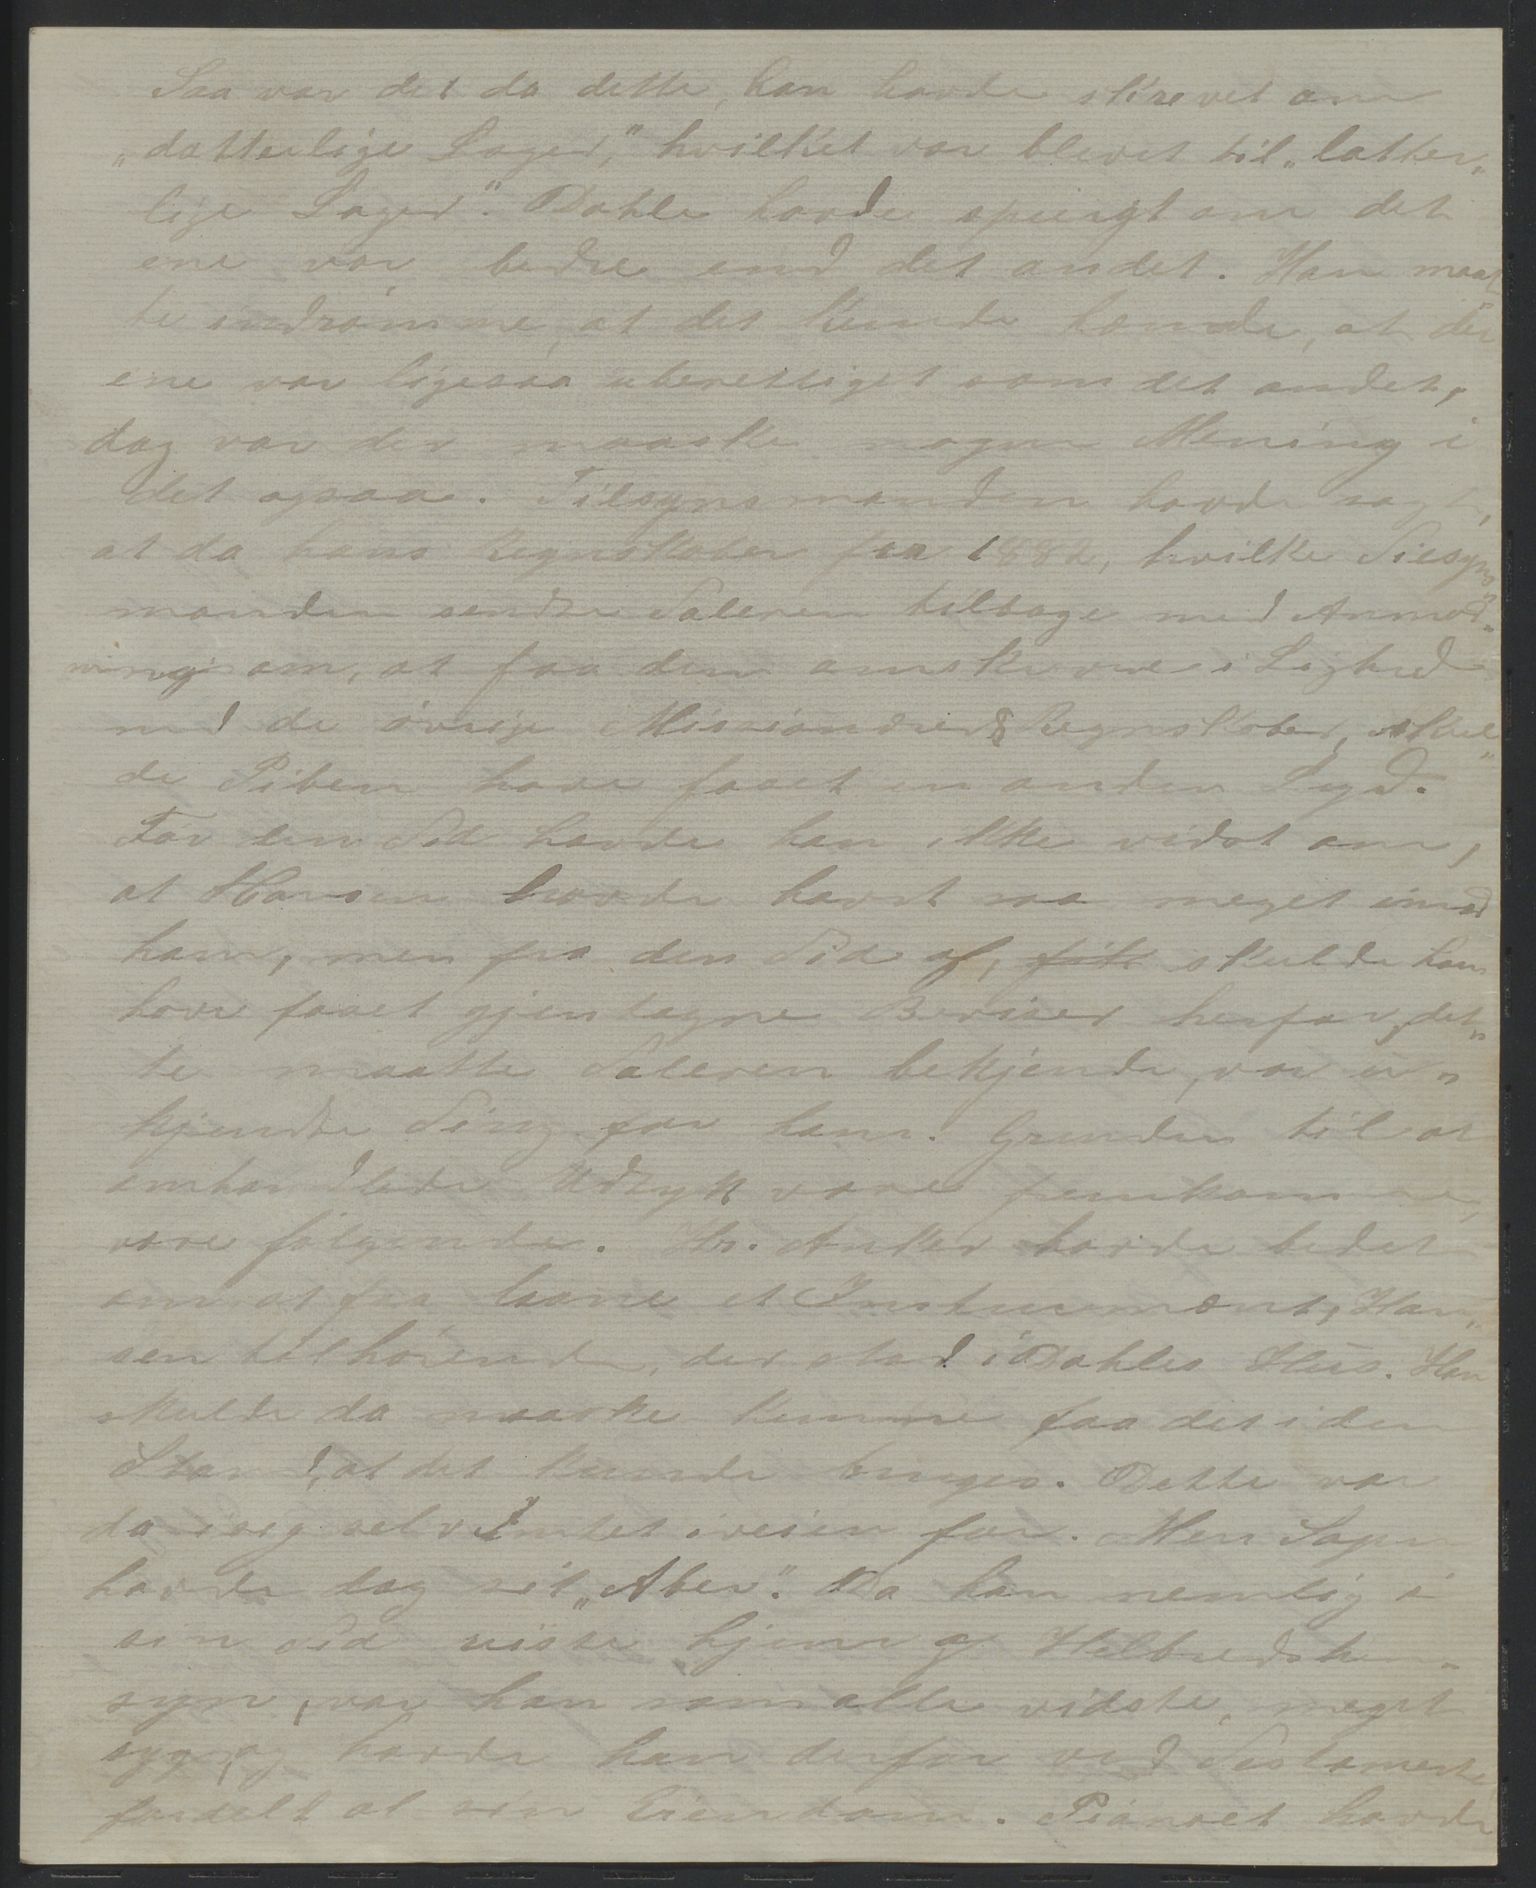 Saa var det da dette, han havde skrevet om
„datterlige Sager," hvilket var blevet til „latter„
lige Sager". Dahle havde spurgt om det
ene var bedre end det andet. Han maat
te indrømme, at det kunde hænde, at det
ene var ligesaa uberettiget som det andet,
dog var der maaske nogen Mening i
det ogsaa. Tilsynsmanden havde sagt,
at da hans Regnskaber fra 1882, hvilke Tilsyns„
manden sendte Taleren tilbage med Anmod„
ning om, at faa dem omskrevne i Lighed
med de øvrige Missionærers Regnskaber, skul„
de Piben have faaet en anden Lyd.
Før den Tid havde han ikke vidst om,
at Hansen havde havt saa meget imod
ham, men fra den Tid af, fik skulde han
have faaet gjentagne Beviser herfor, det„
te maatte Taleren bekjende, var u„
kjendte Ting for ham. Grunden til at
omhandlede Udtryk vare fremkomne,
vare følgende. Hr. Anker havde bedet
om at faa laane et Instrument, Han„
sen tilhørende, der stod i Dahles Hus. Han
skulde da maaske kunne faa det i den
Stand, at det kunde bruges. Dette var
da i sig selv Intet iveien for. Men Sagen
havde dog sit „Aber". Da han nemlig i
sin Tid reiste hjem af Helbredshen„
syn, var han som alle vidste, meget
syg, og havde han derfor ved Testamente
fordelt al sin Eiendom. Pianoet havde